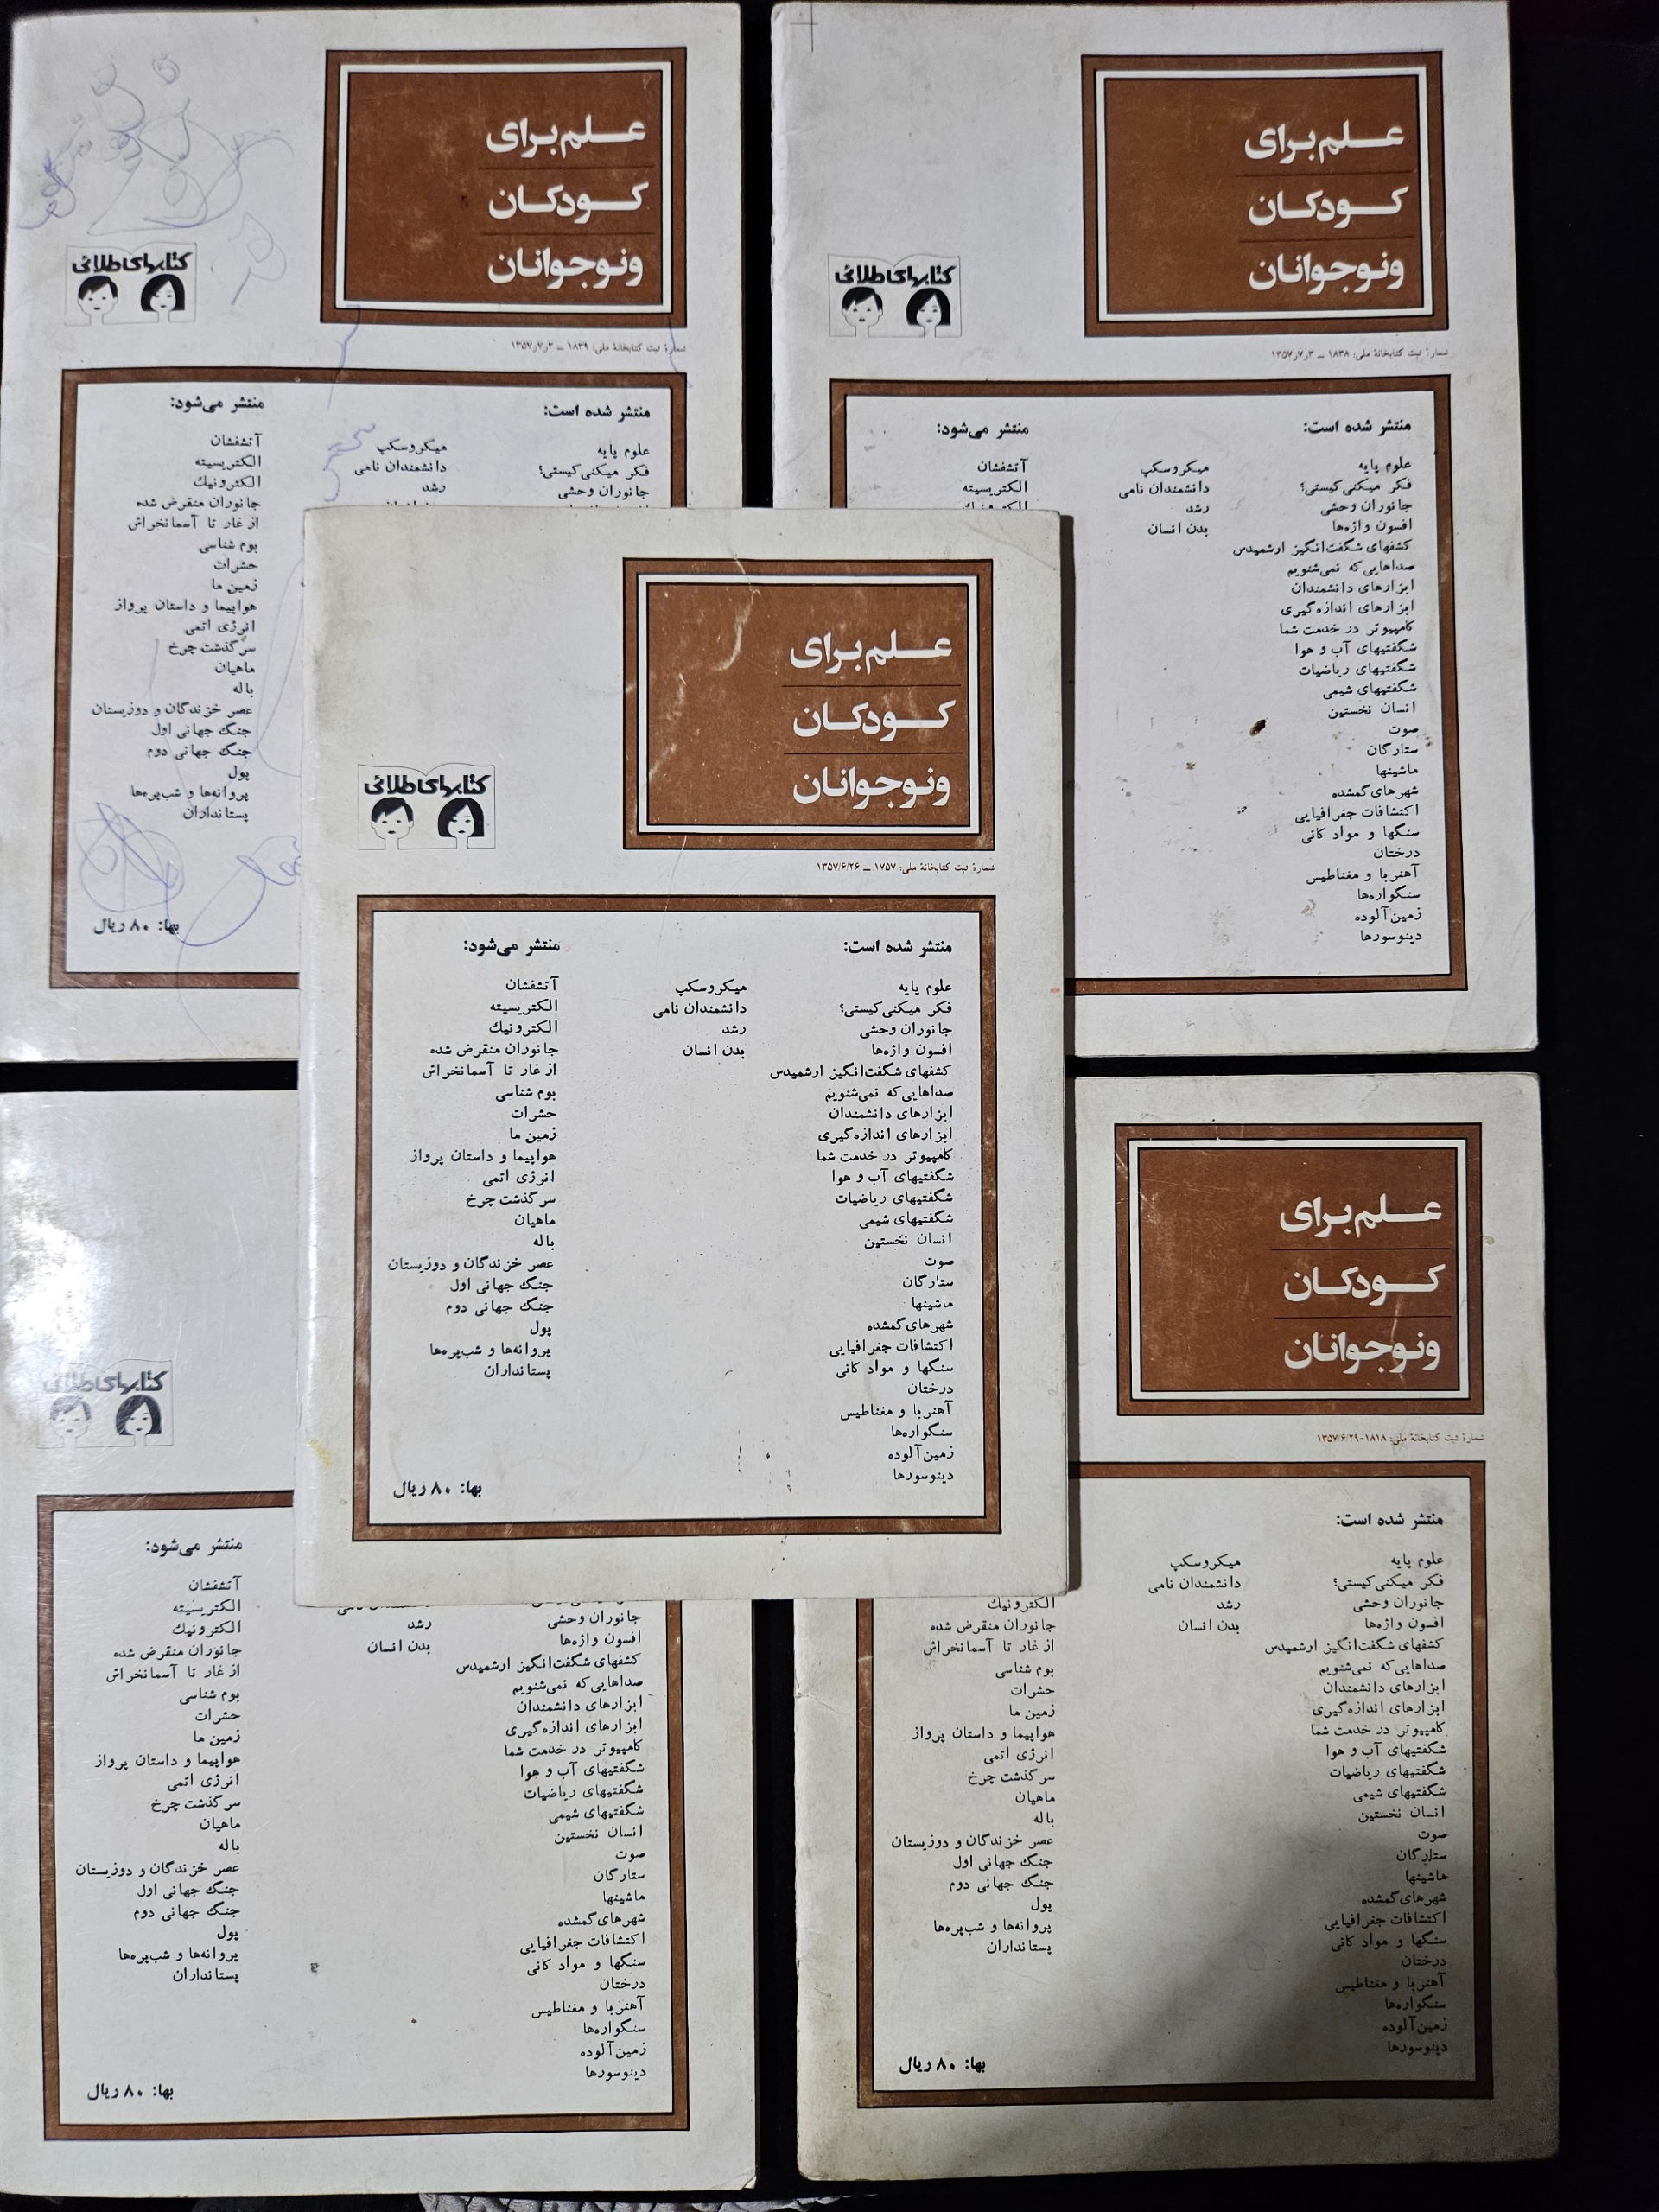 علم برای
کودکان
ونوجوانان
کتابهای طلائی
شمارهٔ ثبت کتابخانهٔ ملی: ۱۸۳۹ – ۱۳۵۷٫۷٫۳
منتشر شده است:
منتشر می‌شود:
علوم پایه
فکر میکنی کیستی؟
جانوران وحشی
میکروسکپ
دانشمندان نامی
رشد
آتشفشان
الکتریسیته
الکترونیك
جانوران منقرض شده
از غار تا آسمانخراش
بوم شناسی
حشرات
زمین ما
هواپیما و داستان پرواز
انرژی اتمی
سرگذشت چرخ
ماهیان
باله
عصر خزندگان و دوزیستان
جنگ جهانی اول
جنگ جهانی دوم
پول
پروانه‌ها و شب‌پره‌ها
پستانداران
بها: ۸۰ ریال
علم برای
کودکان
ونوجوانان
کتابهای طلائی
شمارهٔ ثبت کتابخانهٔ ملی: ۱۸۳۸ – ۱۳۵۷٫۷٫۳
منتشر شده است:
منتشر می‌شود:
علوم پایه
فکر میکنی کیستی؟
جانوران وحشی
افسون واژه‌ها
کشفهای شگفت‌انگیز ارشمیدس
صداهایی که نمی‌شنویم
ابزارهای دانشمندان
ابزارهای اندازه‌گیری
کامپیوتر در خدمت شما
شگفتیهای آب و هوا
شگفتیهای ریاضیات
شگفتیهای شیمی
انسان نخستین
صوت
ستارگان
ماشینها
شهرهای گمشده
اکتشافات جغرافیایی
سنگها و مواد کانی
درختان
آهنربا و مغناطیس
سنگواره‌ها
زمین آلوده
دینوسورها
میکروسکپ
دانشمندان نامی
رشد
بدن انسان
آتشفشان
الکتریسیته
علم برای
کودکان
ونوجوانان
کتابهای طلائی
شمارهٔ ثبت کتابخانهٔ ملی: ۱۷۵۷ – ۱۳۵۷/۶/۲۶
منتشر شده است:
منتشر می‌شود:
علوم پایه
فکر میکنی کیستی؟
جانوران وحشی
افسون واژه‌ها
کشفهای شگفت‌انگیز ارشمیدس
صداهایی که نمی‌شنویم
ابزارهای دانشمندان
ابزارهای اندازه‌گیری
کامپیوتر در خدمت شما
شگفتیهای آب و هوا
شگفتیهای ریاضیات
شگفتیهای شیمی
انسان نخستین
صوت
ستارگان
ماشینها
شهرهای گمشده
اکتشافات جغرافیایی
سنگها و مواد کانی
درختان
آهنربا و مغناطیس
سنگواره‌ها
زمین آلوده
دینوسورها
میکروسکپ
دانشمندان نامی
رشد
بدن انسان
آتشفشان
الکتریسیته
الکترونیك
جانوران منقرض شده
از غار تا آسمانخراش
بوم شناسی
حشرات
زمین ما
هواپیما و داستان پرواز
انرژی اتمی
سرگذشت چرخ
ماهیان
باله
عصر خزندگان و دوزیستان
جنگ جهانی اول
جنگ جهانی دوم
پول
پروانه‌ها و شب‌پره‌ها
پستانداران
بها: ۸۰ ریال
کتابهای طلائی
منتشر می‌شود:
جانوران وحشی
افسون واژه‌ها
کشفهای شگفت‌انگیز ارشمیدس
صداهایی که نمی‌شنویم
ابزارهای دانشمندان
ابزارهای اندازه‌گیری
کامپیوتر در خدمت شما
شگفتیهای آب و هوا
شگفتیهای ریاضیات
شگفتیهای شیمی
انسان نخستین
صوت
ستارگان
ماشینها
شهرهای گمشده
اکتشافات جغرافیایی
سنگها و مواد کانی
درختان
آهنربا و مغناطیس
سنگواره‌ها
زمین آلوده
دینوسورها
رشد
بدن انسان
آتشفشان
الکتریسیته
الکترونیك
جانوران منقرض شده
از غار تا آسمانخراش
بوم شناسی
حشرات
زمین ما
هواپیما و داستان پرواز
انرژی اتمی
سرگذشت چرخ
ماهیان
باله
عصر خزندگان و دوزیستان
جنگ جهانی اول
جنگ جهانی دوم
پول
پروانه‌ها و شب‌پره‌ها
پستانداران
بها: ۸۰ ریال
علم برای
کودکان
ونوجوانان
شمارهٔ ثبت کتابخانهٔ ملی: ۱۸۱۸-۱۳۵۷/۶/۲۹
منتشر شده است:
علوم پایه
فکر میکنی کیستی؟
جانوران وحشی
افسون واژه‌ها
کشفهای شگفت‌انگیز ارشمیدس
صداهایی که نمی‌شنویم
ابزارهای دانشمندان
ابزارهای اندازه‌گیری
کامپیوتر در خدمت شما
شگفتیهای آب و هوا
شگفتیهای ریاضیات
شگفتیهای شیمی
انسان نخستین
صوت
ستارگان
ماشینها
شهرهای گمشده
اکتشافات جغرافیایی
سنگها و مواد کانی
درختان
آهنربا و مغناطیس
سنگواره‌ها
زمین آلوده
دینوسورها
میکروسکپ
دانشمندان نامی
رشد
بدن انسان
الکترونیك
جانوران منقرض شده
از غار تا آسمانخراش
بوم شناسی
حشرات
زمین ما
هواپیما و داستان پرواز
انرژی اتمی
سرگذشت چرخ
ماهیان
باله
عصر خزندگان و دوزیستان
جنگ جهانی اول
جنگ جهانی دوم
پول
پروانه‌ها و شب‌پره‌ها
پستانداران
بها: ۸۰ ریال